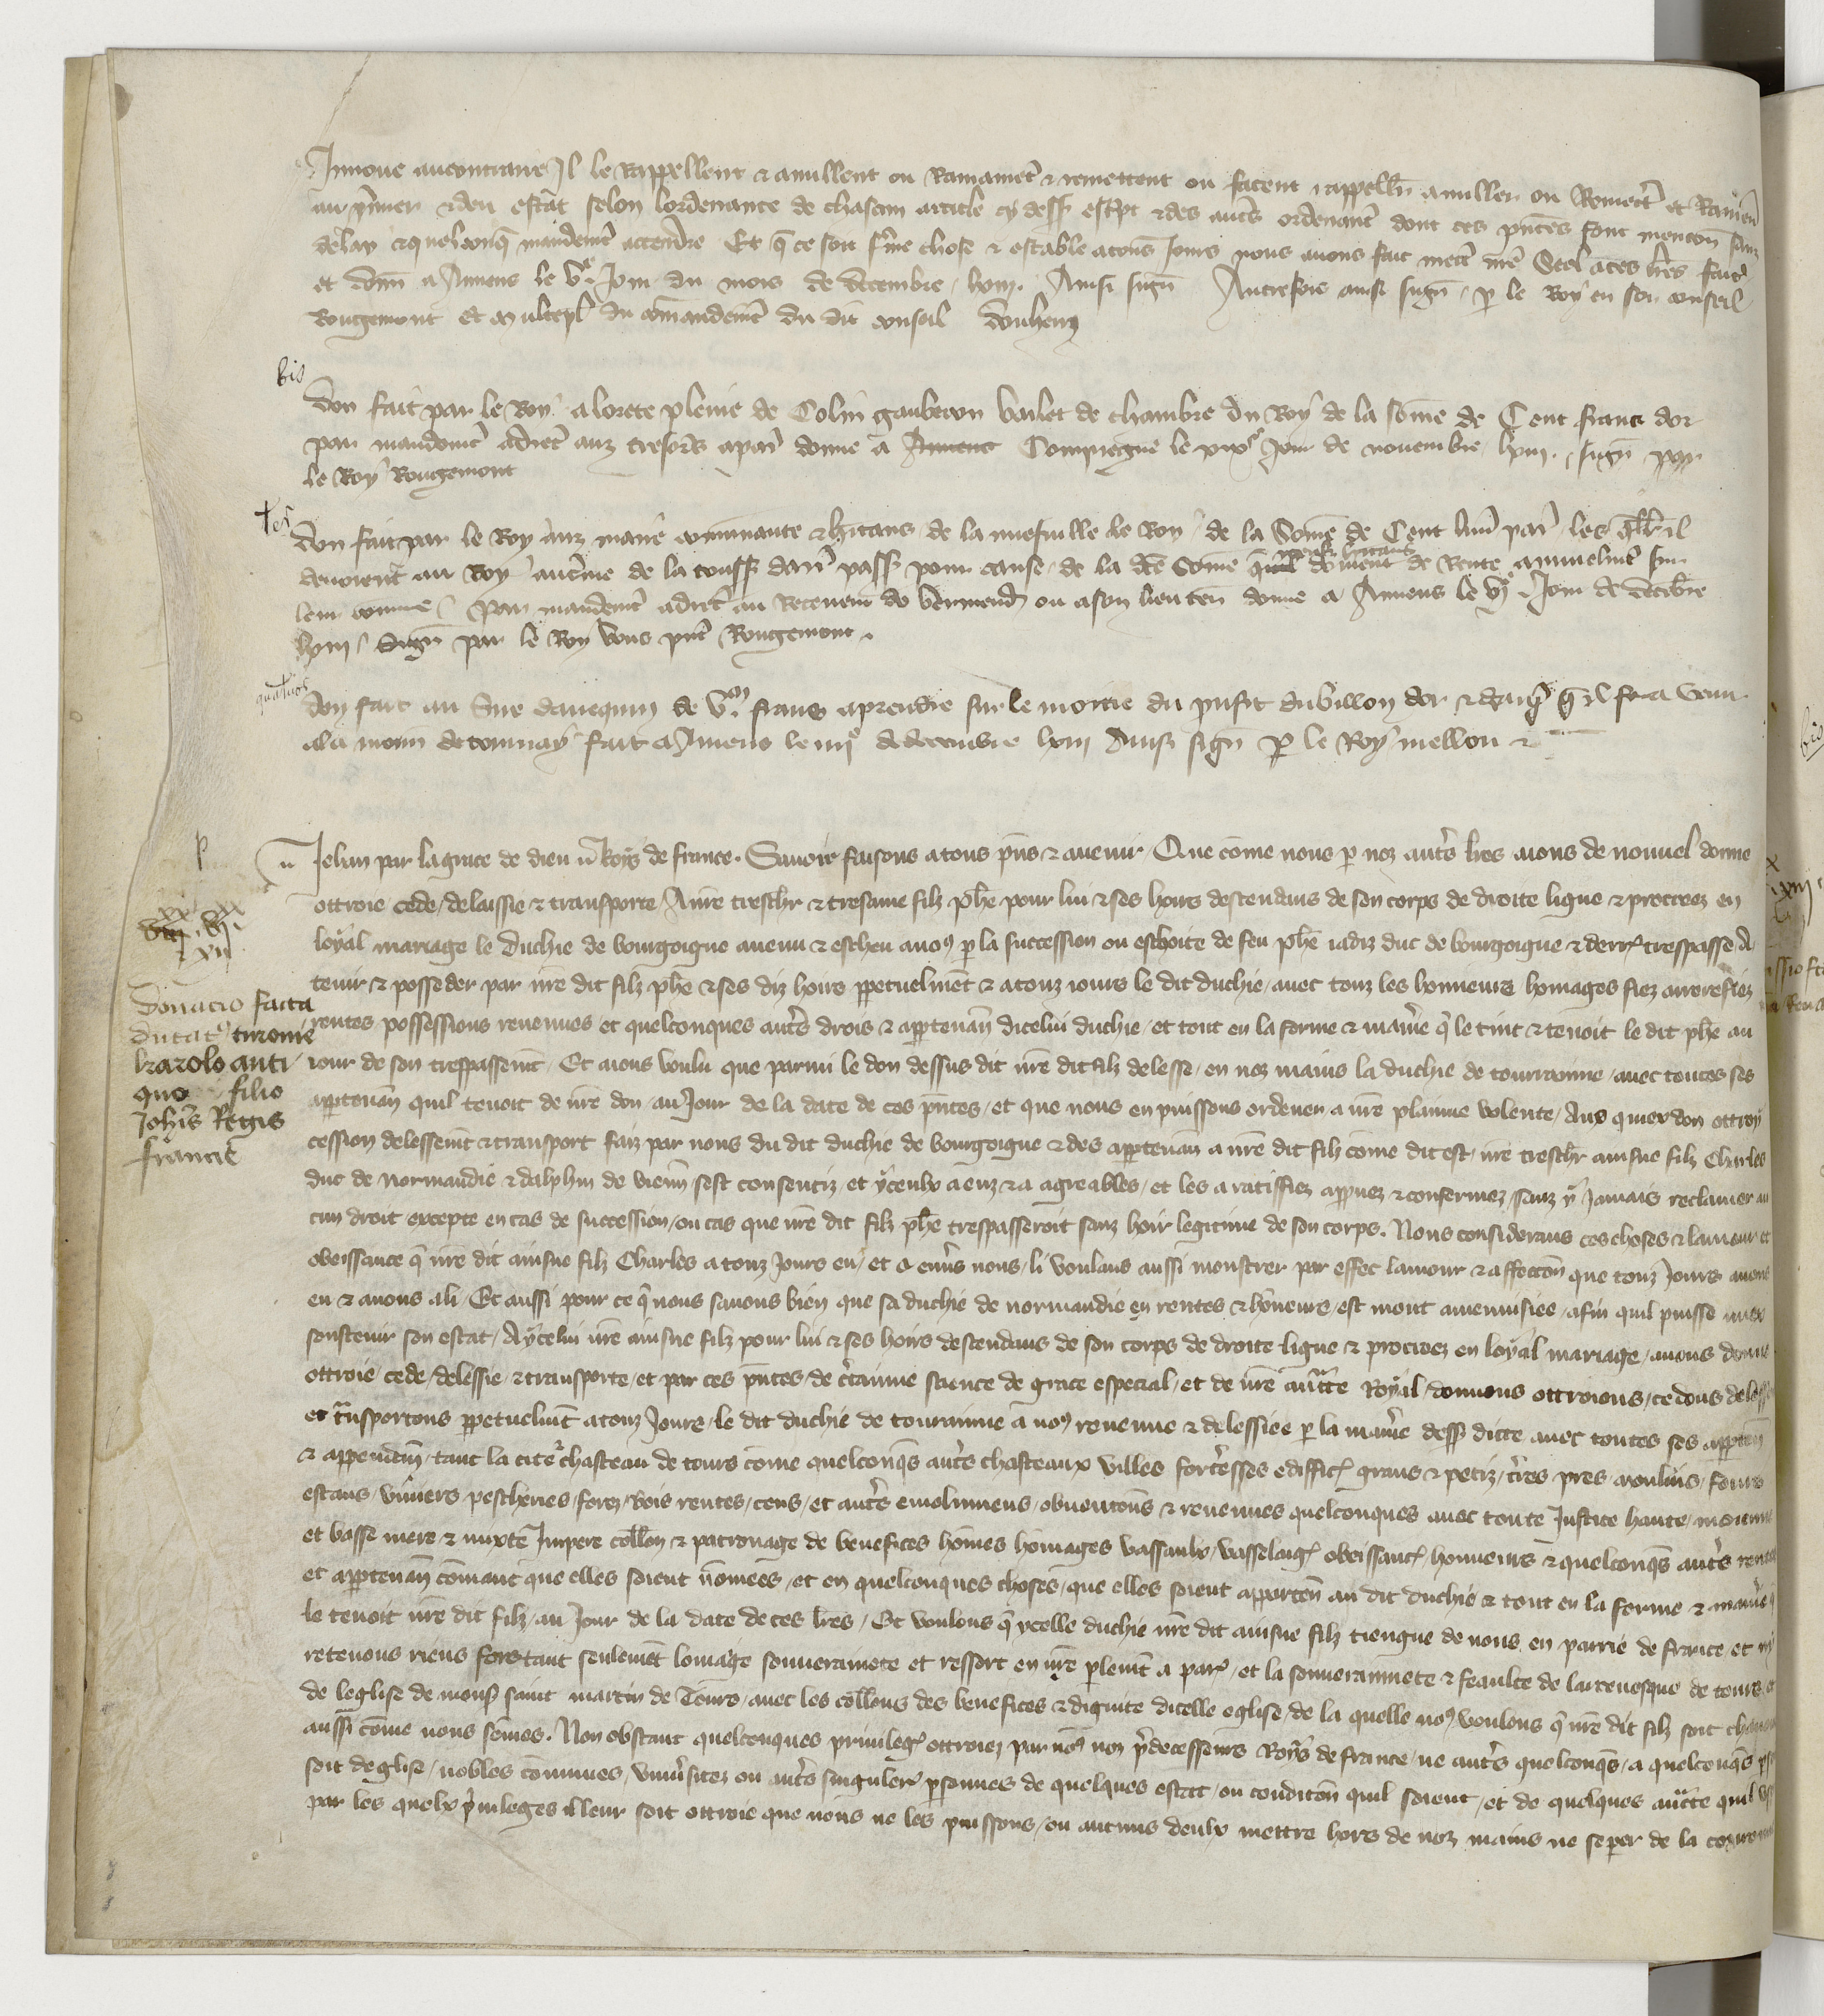 au contraire Il le Rappellent & anullent ou & remettent ou facent rappell̄r anuller ou
au premier & deu estat selon lordenance de chascun article cy dess esc̄pt & des aut̄s ordenanc̄ dont ces p̄ntes font mencon̄ sanz
delay & quelconq̄ mandem̄t attendre Et q̄ ce soit f̄me chose & estable a tous Jours nous auons fait mett̄ nr̄e Seel a ces lr̄es fait̄
et don̄n a Amiens le v.e Jour du mois de decembre lxiii. Ainsi sign̄ Autrefois ainsi sign̄ p̄ le Roy en son conseil
Rougemont Et du com̄andem̄t du dit conseil
bis
Don fait par le Roy a lorete de Colin vallet de chambre du Roy de la som̄e de Cent frans dor
par mandem̄t adrec̄ aux tresor̄s a par̄ donne a Amiens Compiegne le xixe Jour de nouembre lxiii. sign̄ par
le Roy Rougemont
ter
Don fait par le Roy aux maire & hitans de la nuefuille le Roy de la Som̄e de Cent liur̄ par̄ les q̄lx il
deuoient au Roy au t̄me de la touss dar̄r pass pour cause de la dc̄e Som̄e doiuent de Rente annuelm̄t sur
leur com̄une Par mandem̄t adrec̄ au Receueur de Vermend̄ ou a son lieuten̄ donne a Amiens le vje Jour de decēbre
lxiii Sign̄ par le Roy vous p̄nt Rougemont.
quater
Don fait au Sire de vm frans a prendre sur le moitie du p̄ufit du billon dor & darg̃ q̄ il fra venir
a la monn̄ de tournay fait a Amiens le iiije de decembre lxiii Ainsi sign̄ p̄ le Roy mellou &
Jehan par la grace de dieu Roys de france. Sauoir faisons a tous p̄ns & auenir Que com̄e nous p̄ noz aut̄s lr̄es aions de nouuel donne
ottroie cede delaissie & transporte A nr̄e tresch̄r & tresame filz ph̄e pour lui & ses hoirs descendans de son corps de droite ligne & procreez en
loyal mariage le Duchie de bourgoigne auenu & escheu a nous p̄ la succession ou eschoite de feu ph̄e iadiz duc de bourgoigne & derr̄ trespasse A
tenir & posseder par nr̄e dit filz ph̄e & ses diz hoirs p̄petuelmēt & a touz iours le dit duchie auec touz les honneurs homages fiez arrerefiez
rentes possessions reuenues et quelconques aut̄s drois & app̄tenan̄ dicelui duchie et tout en la forme & man̄ie q̄ le tint & tenoit le dit ph̄e au
iour de son trespassem̄t Et aions voulu que parmi le don dessus dit nr̄e dit filz delesse en noz mains la duchie de tourrainne auec toutes ses
app̄tenan̄ quil tenoit de nr̄e don au Jour de la date de ces p̄ntes et que nous en puissons ordener a nr̄e plainne volente Aux quiex don ottroy
cession delessem̄t & transport faiz par nous du dit duchie de bourgoigne & des app̄tenan̄ a nr̄e dit filz com̄e dit est nr̄e tresch̄r ainsne filz Charles
duc de Normandie & dalphin de vienn̄ sest consentiz et yceulx a euz & a agreables et les a ratiffiez appuez & confermez sanz y Jamais reclamer au
cun droit excepte en cas de succession ou cas que nr̄e dit filz ph̄e trespasseroit sanz hoir legitime de son corps. Nous considerans ces choses & lamour et
obeissance q̄ nr̄e dit ainsne filz Charles a touz Jours eu et a enūs nous li voulans aussi monstrer par effec lamour & affection̄ que touz Jours auons
eu & auons a li Et aussi pour ce q̄ nous sauons bien que sa duchie de normandie en rentes & hōneurs est mout amenuisiee afin quil puisse miex
soustenir son estat A ycelui nr̄e ainsne filz pour lui & ses hoirs descendans de son corps de droite ligne & procreez en loyal mariage auons donne
ottroie cede delessie & transporte et par ces p̄ntes de c̄tainne science de grace especial et de nr̄e auct̄te Royal donnons ottroions cedons delessons
et t̄nsportons p̄petuelm̄t a touz Jours le dit duchie de tourainne a nous reuenue & delessiee p̄ la man̄ie dess̄ dicte auec toutes ses app̄ten̄
& appendan̄ tant la cite & chasteau de tours com̄e quelconq̄s aut̄s chasteaux villes fort̄esses ediffic̄ grans & petiz t̄res prez moulins fours
estans viuiers pescheries forez bois rentes cens et aut̄s emolumens obuencions & reuenues quelconques auec toute Justice haute moienne
et basse mere & mixte Impere coll̄on & patronage de benefices hom̄es hom̄ages vassaulx vasselaiḡ obeissanc̄ honneurs & quelconq̄s aut̄s rentes
et app̄tenan̄ com̄ant que elles soient nōmees et en quelconques choses que elles soient apporten̄ au dit duchie & tout en la forme & man̄ie q̄
le tenoit nr̄e dit filz au Jour de la date de ces lr̄es Et voulons q̄ ycelle duchie nr̄e dit ainsne filz tiengne de nous en parrie de france et ny
retenous riens fors tant seulemēt lomage souueramete et ressort en nr̄e p̄lem̄t a par̄ et la souuerainnete & feaulte de larceuesque de tours et
de leglise de mons̄ saint martin de Tours auec les coll̄ons des benefices & dignite dicelle eglise de la quelle nous voulons q̄ nr̄e dit filz soit chanoine
aussi com̄e nous som̄es. Non obstant quelconques priuileḡ ottroiez par nous noz p̄decesseurs Roys de france ne aut̄s quelconq̄s a quelconq̄s
soit deglise nobles com̄unes vniūsitez ou aut̄s singuler̄ p̄sonnes de quelques estat ou condicon̄ quil soient et de quelques auct̄te quil
par les quelx p̄uileges il leur soit ottroie que nous ne les puissons ou aucuns deulx mettre hors de noz mains ne sep̄er de la couronne
Donacio facta
ducat9 turonie
karolo anti
quo filio
Joh̄is Regis
francie